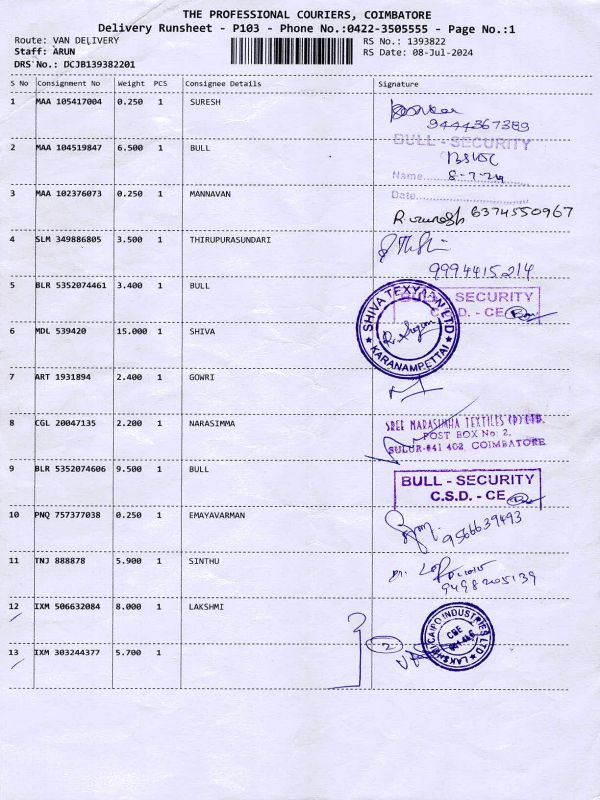 THE PROFESSIONAL COURIERS, COIMBATORE
Delivery Runsheet - P103 - Phone No.:0422-3505555 - Page No.:1
Route: VAN DELIVERY RS No.: 1393822
Staff: ARUN RS Date: 08-Jul-2024
DRS No.: DCJB139382201
S No Consignment No Weight PCS Consignee Details Signature
1 MAA 105417004 0.250 1 SURESH
9444367389
BULL - SECURITY
2 MAA 104519847 6.500 1 BULL
Name 8-7-24
Date
3 MAA 102376073 0.250 1 MANNAVAN
6374550967
4 SLM 349886805 3.500 1 THIRUPURASUNDARI
9994415214
5 BLR 5352074461 3.400 1 BULL
BULL - SECURITY
C.S.D. - CE
6 MDL 539420 15.000 1 SHIVA
SHIVA TEXYARN LTD
KARANAMPETTAI
7 ART 1931894 2.400 1 GOWRI
8 CGL 20047135 2.200 1 NARASIMMA
SREE NARASIMHA TEXTILES (P) LTD.
POST BOX No: 2,
SULUR-641 402, COIMBATORE
9 BLR 5352074606 9.500 1 BULL
BULL - SECURITY
C.S.D. - CE
10 PNQ 757377038 0.250 1 EMAYAVARMAN
9566639493
11 TNJ 888878 5.900 1 SINTHU
9498205139
12 IXM 506632084 8.000 1 LAKSHMI
2
13 IXM 303244377 5.700 1